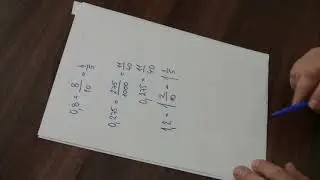 0,8 = 8/10 = 4/5
0,275 = 275/1000 = 11/40
0,275 = 11/40
1,2 = 1 2/10 = 1 1/5